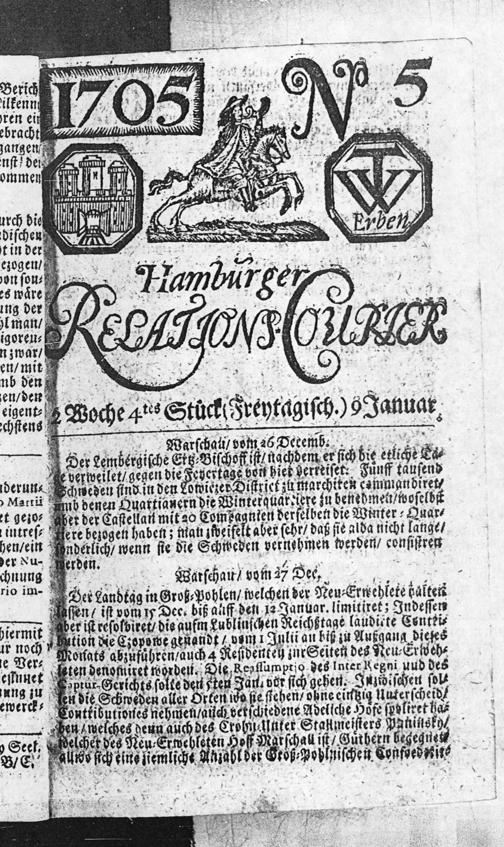 1705
No 5
TW
Erben
Hamburger
RELATIONS-COURIER
2 Woche 4tes Stück (Freytagisch.) 9 Januar.
Warschau/ vom 26 Decemb.
Der Lembergische Ertz-Bischoff ist/ nachdem er sich die etliche Ta-
ge verweilet/ gegen die Feyertage von hier verreiset: Fünff tausend
Schweden sind in den Lowiczer District zu marchiren commandiret/
umb denen Quartianern die Winterquartiere zu benehmen/ woselbst
aber der Castellan mit 20 Compagnien derselben die Winter-Quar-
tiere bezogen haben; man zweifelt aber sehr/ daß sie alda nicht lange/
sonderlich/ wenn sie die Schweden vernehmen werden/ consistiren
werden.
Warschau/ vom 27 Dec.
Der Landtag in Groß-Pohlen/ welchen der Neu-Erwehlete halten
lassen/ ist vom 15 Dec. biß auff den 12 Januar. limitiret; Indessen
aber ist resolviret/ die aufm Lublinschen Reichßtage laudirte Contri-
bution die Czopowe genandt/ vom 1 Julii an biß zu Außgang dieses
Monats abzuführen/ auch 4 Residenten zur Seiten des Neu-Erweh-
leten denomiret worden. Die Reassumptio des Inter Regni und des
Captur-Gerichts solte den 5ten Jan. vor sich gehen. Inzwischen sol-
len die Schweden aller Orten wo sie stehen/ ohne eintzig Unterscheid/
Contributiones nehmen/ auch verschiedene Adeliche Höfe spoliret ha-
ben/ welches denn auch des Crohn-Unter Stallmeisters
welcher des Neu-Erwehleten Hoff Marschall ist/ Güthern begegnet
allwo sich eine ziemliche Anzahl der Groß-Pohlnischen